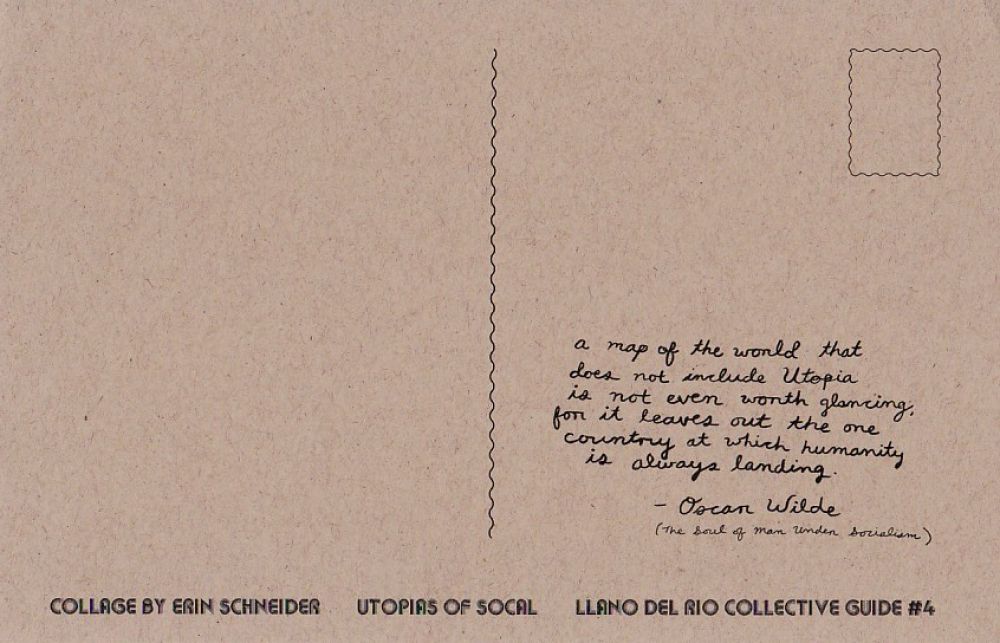 a map of the world that
does not include Utopia
is not even worth glancing,
for it leaves out the one
country at which humanity
is always landing.
– Oscar Wilde
(The Soul of Man Under Socialism)
COLLAGE BY ERIN SCHNEIDER UTOPIAS OF SOCAL LLANO DEL RIO COLLECTIVE GUIDE #4